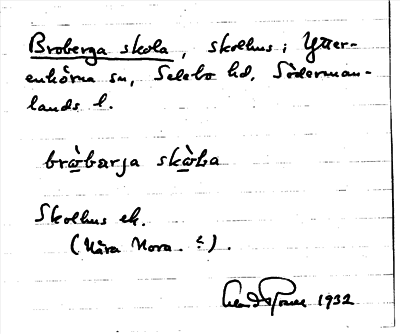 Broberga skola, skolhus i Ytter-
enhörna sn, Selebo hd, Söderman-
lands l.
bròbærja skòla
Skolhus ek.
(Nära Mora ?).
1932